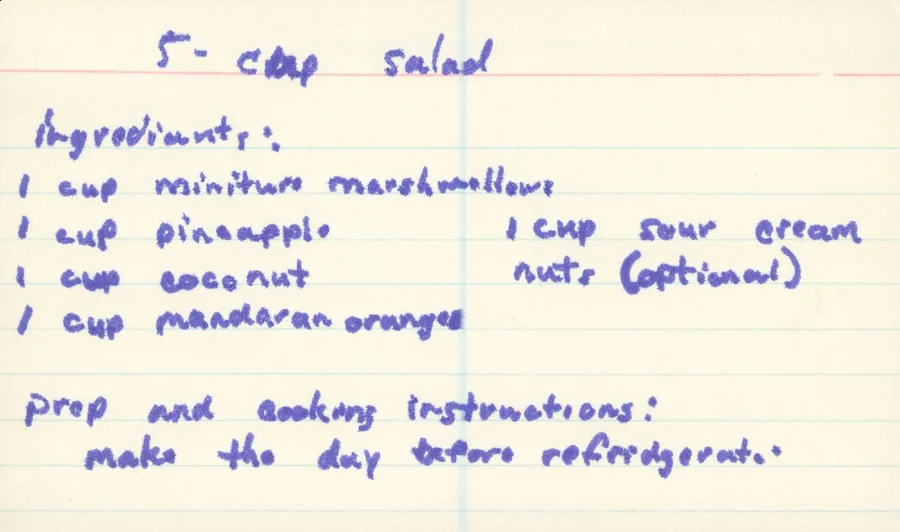 5-cup salad
Ingrediants:
1 cup miniture marshmallows
1 cup pineapple
1 cup coconut
1 cup mandaran oranges
1 cup sour cream
nuts (optional)
prep and cooking instructions:
make the day before refridgerate.